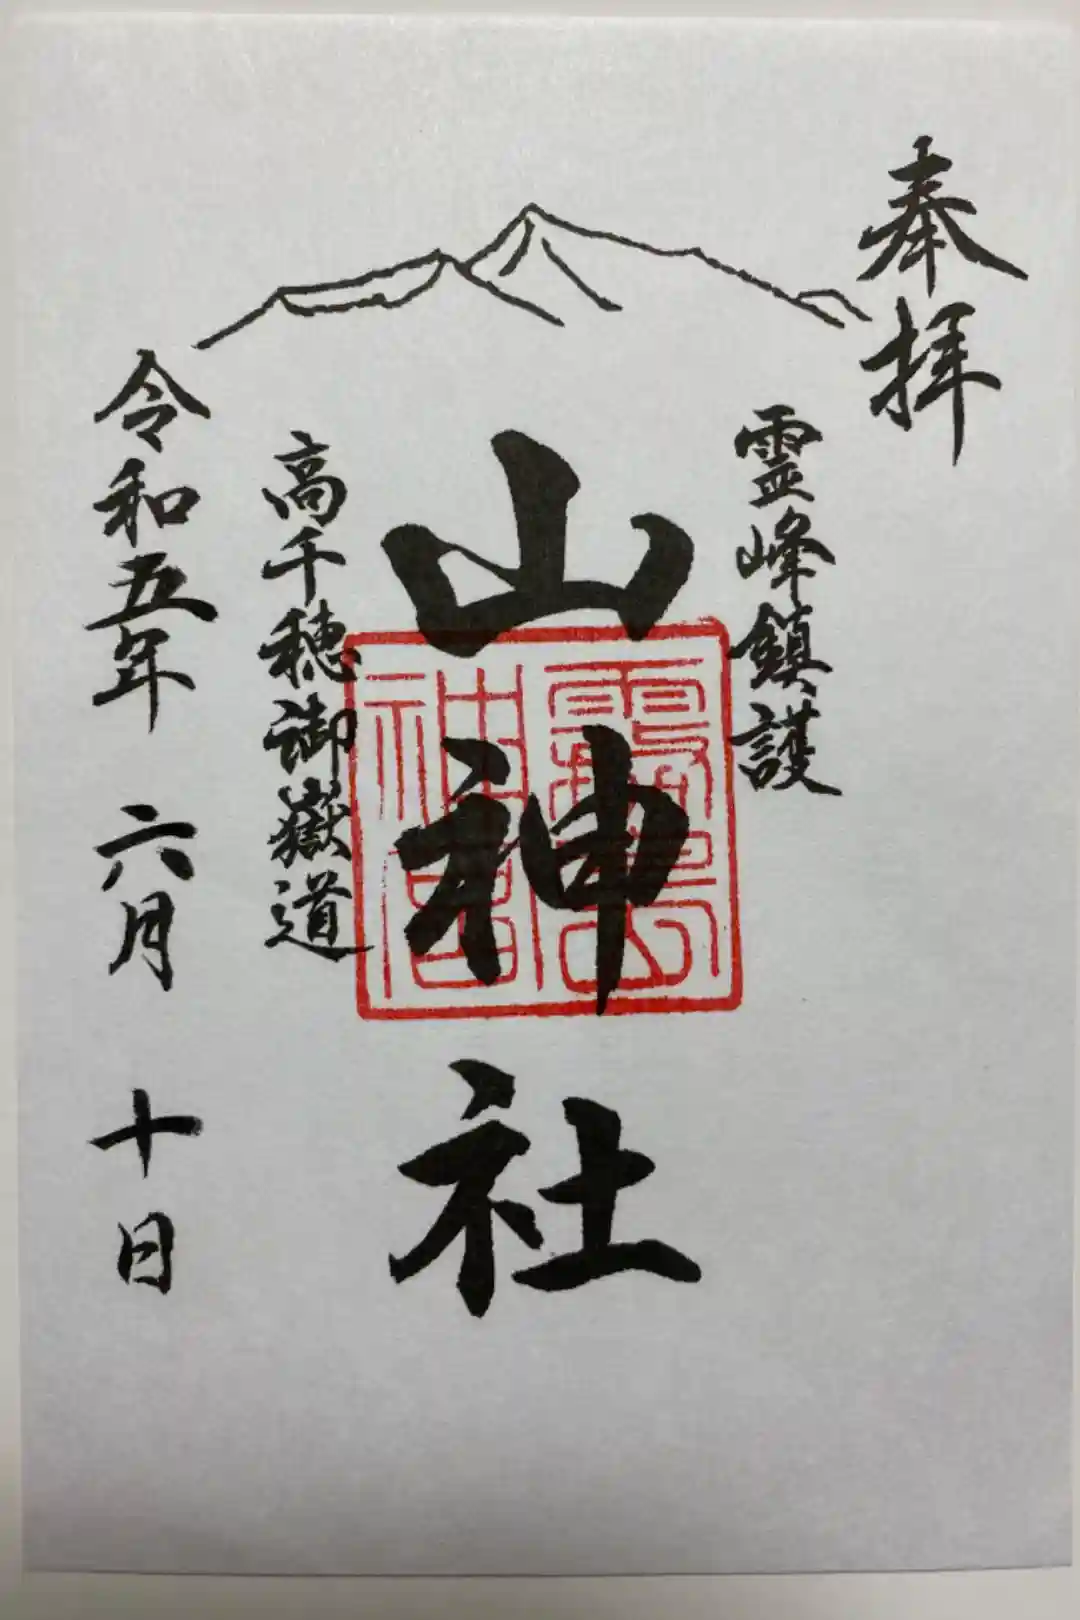 奉拝
霊峰鎮護
山神社
霧島
神宮
高千穂御嶽道
令和五年 六月 十日